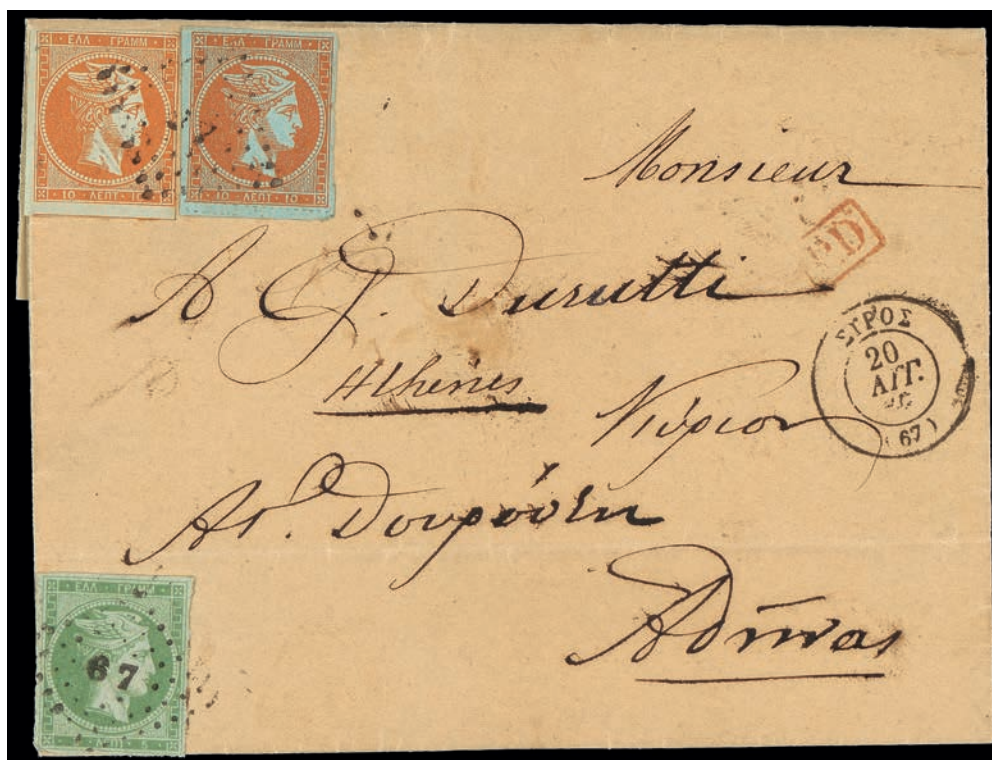 ΕΛΛ ΓΡΑΜΜ
10 ΛΕΠΤ 10
ΕΛΛ ΓΡΑΜΜ
10 ΛΕΠΤ 10
67
Monsieur
PD
A J. Durutti
ΣΥΡΟΣ
20
ΑΥΓ.
(67)
Athenes
Κύριον
Δουρούτην
Αθήνας
ΕΛΛ ΓΡΑΜΜ
67
ΛΕΠΤ 5